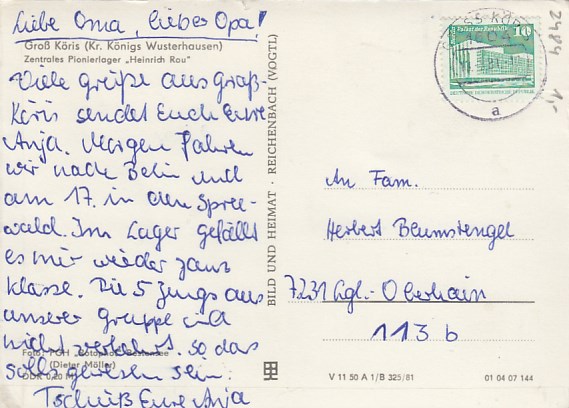 Liebe Oma, lieber Opa!
Groß Köris (Kr. Königs Wusterhausen)
Zentrales Pionierlager „Heinrich Rau"
Viele Grüße aus Groß-
Köris sendet Euch Eure
Anja. Morgen fahren
wir nach Belin und
am 17. in den Spree-
wald. Im Lager gefällt
es mir wieder ganz
klasse. Die 5 Jungs aus
unserer Gruppe sind
nicht verkehrt. So das
solls gewesen sein.
Tschüß Eure Anja
Foto: PGH „Rotophot" Bestensee
(Dieter Möller)
DDR 0,20 M
BILD UND HEIMAT · REICHENBACH (VOGTL)
Palast der Republik 10
DEUTSCHE DEMOKRATISCHE REPUBLIK
a
2484
1,-
An Fam.
Herbert Blumstengel
7231 Lgl.-Oberhain
113 b
V 11 50 A 1/B 325/81
01 04 07 144